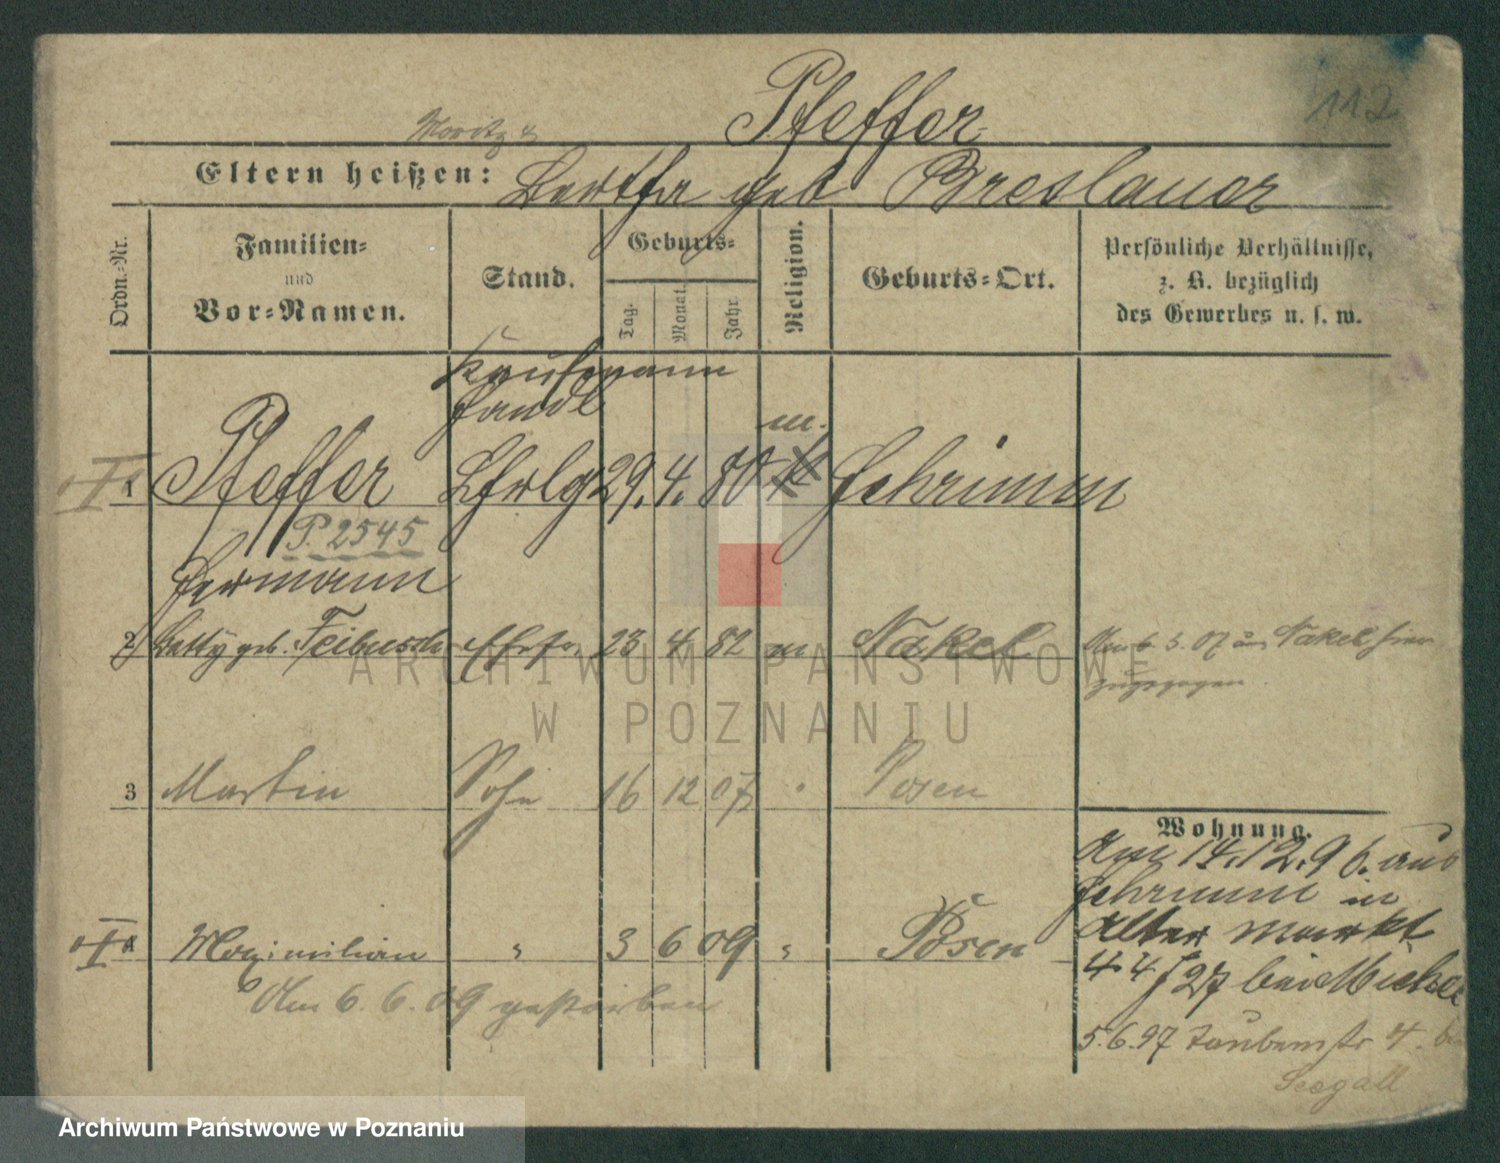 112
Pfeffer
Moritz &
Eltern heißen: Bertha geb Breslauer
Ordn.-Nr.
Familien-
und
Vor-Namen.
Stand.
Geburts-
Tag.
Monat.
Jahr
Religion.
Geburts-Ort.
Persönliche Verhältnisse,
z. B. bezüglich
des Gewerbes u. s. w.
Kaufmann
Handl
m.
1 Pfeffer Lhrlg 29. 4. 80 Jchrimm
P. 2545
Hermann
2 Betty geb. Feibusch Ehefr. 23 4 82 m Nakel Am 6. 3. 07 aus Nakel hier
zugezogen
3 Martin Sohn 16 12 07 Posen
Wohnung.
Am 14.12.96. aus
Schrimm in
Alter Markt
4 Maximilian " 3 6 09 " Posen
Am 6. 6. 09 gestorben
5.6.97 Taubenstr 4. bei
Seegall
ARCHIWUM PAŃSTWOWE
W POZNANIU
Archiwum Państwowe w Poznaniu